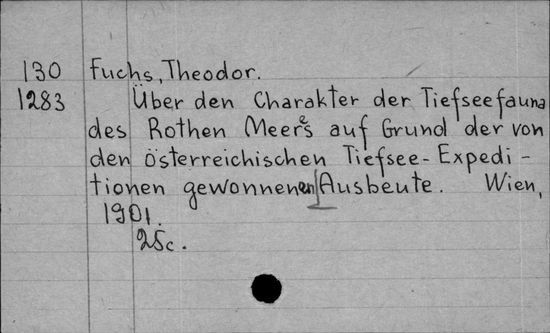 130 Fuchs, Theodor.
1283 Über den Charakter der Tiefseefauna
des Rothen Meeres auf Grund der von
den österreichischen Tiefsee-Expedi-
tionen gewonnenen Ausbeute. Wien,
1901.
25c.